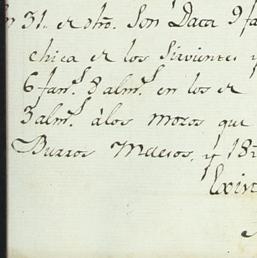 31. er otro. Son Daca 9 fa
chica er los Sirvientes y
6 fan.s 8 alm.s en los er
3 alm.s à los mozos que
Burros Maesos, y 18
Exist